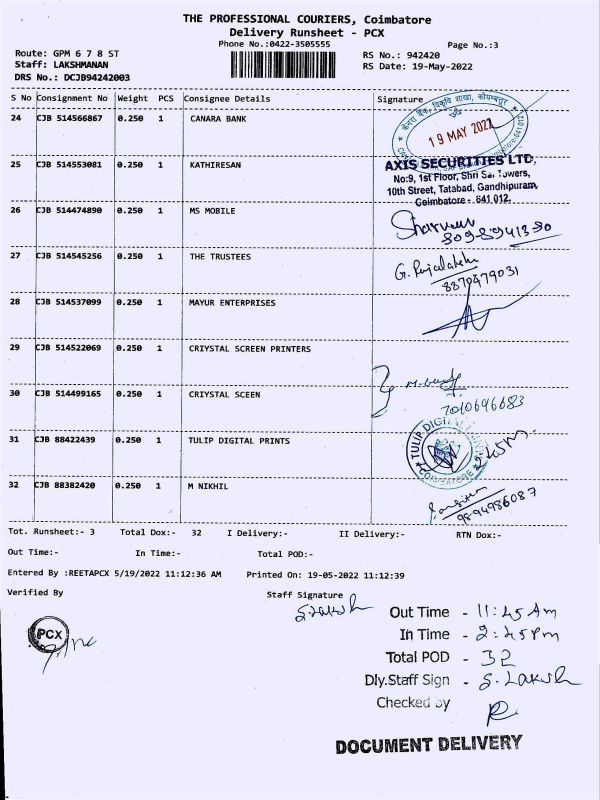 THE PROFESSIONAL COURIERS, Coimbatore
Delivery Runsheet - PCX
Phone No.:0422-3505555
Page No.:3
Route: GPM 6 7 8 ST
Staff: LAKSHMANAN
DRS No.: DCJB94242003
RS No.: 942420
RS Date: 19-May-2022
S No Consignment No Weight PCS Consignee Details Signature
24 CJB 514566867 0.250 1 CANARA BANK
19 MAY 2022
25 CJB 514553081 0.250 1 KATHIRESAN
AXIS SECURITIES LTD,
No:9, 1st Floor, Shri Sai Towers,
10th Street, Tatabad, Gandhipuram,
Coimbatore - 641 012.
26 CJB 514474890 0.250 1 MS MOBILE
27 CJB 514545256 0.250 1 THE TRUSTEES
8870479031
28 CJB 514537099 0.250 1 MAYUR ENTERPRISES
29 CJB 514522069 0.250 1 CRIYSTAL SCREEN PRINTERS
30 CJB 514499165 0.250 1 CRIYSTAL SCEEN
7010696683
31 CJB 88422439 0.250 1 TULIP DIGITAL PRINTS
TULIP DIGITAL PRINTS
COIMBATORE
32 CJB 88382420 0.250 1 M NIKHIL
9894986087
Tot. Runsheet:- 3 Total Dox:- 32 I Delivery:- II Delivery:- RTN Dox:-
Out Time:- In Time:- Total POD:-
Entered By :REETAPCX 5/19/2022 11:12:36 AM Printed On: 19-05-2022 11:12:39
Verified By Staff Signature
S. Laksh
PCX
Out Time - 11:45 Am
In Time - 2:45 Pm
Total POD - 32
Dly.Staff Sign - S. Laksh
Checked by
DOCUMENT DELIVERY